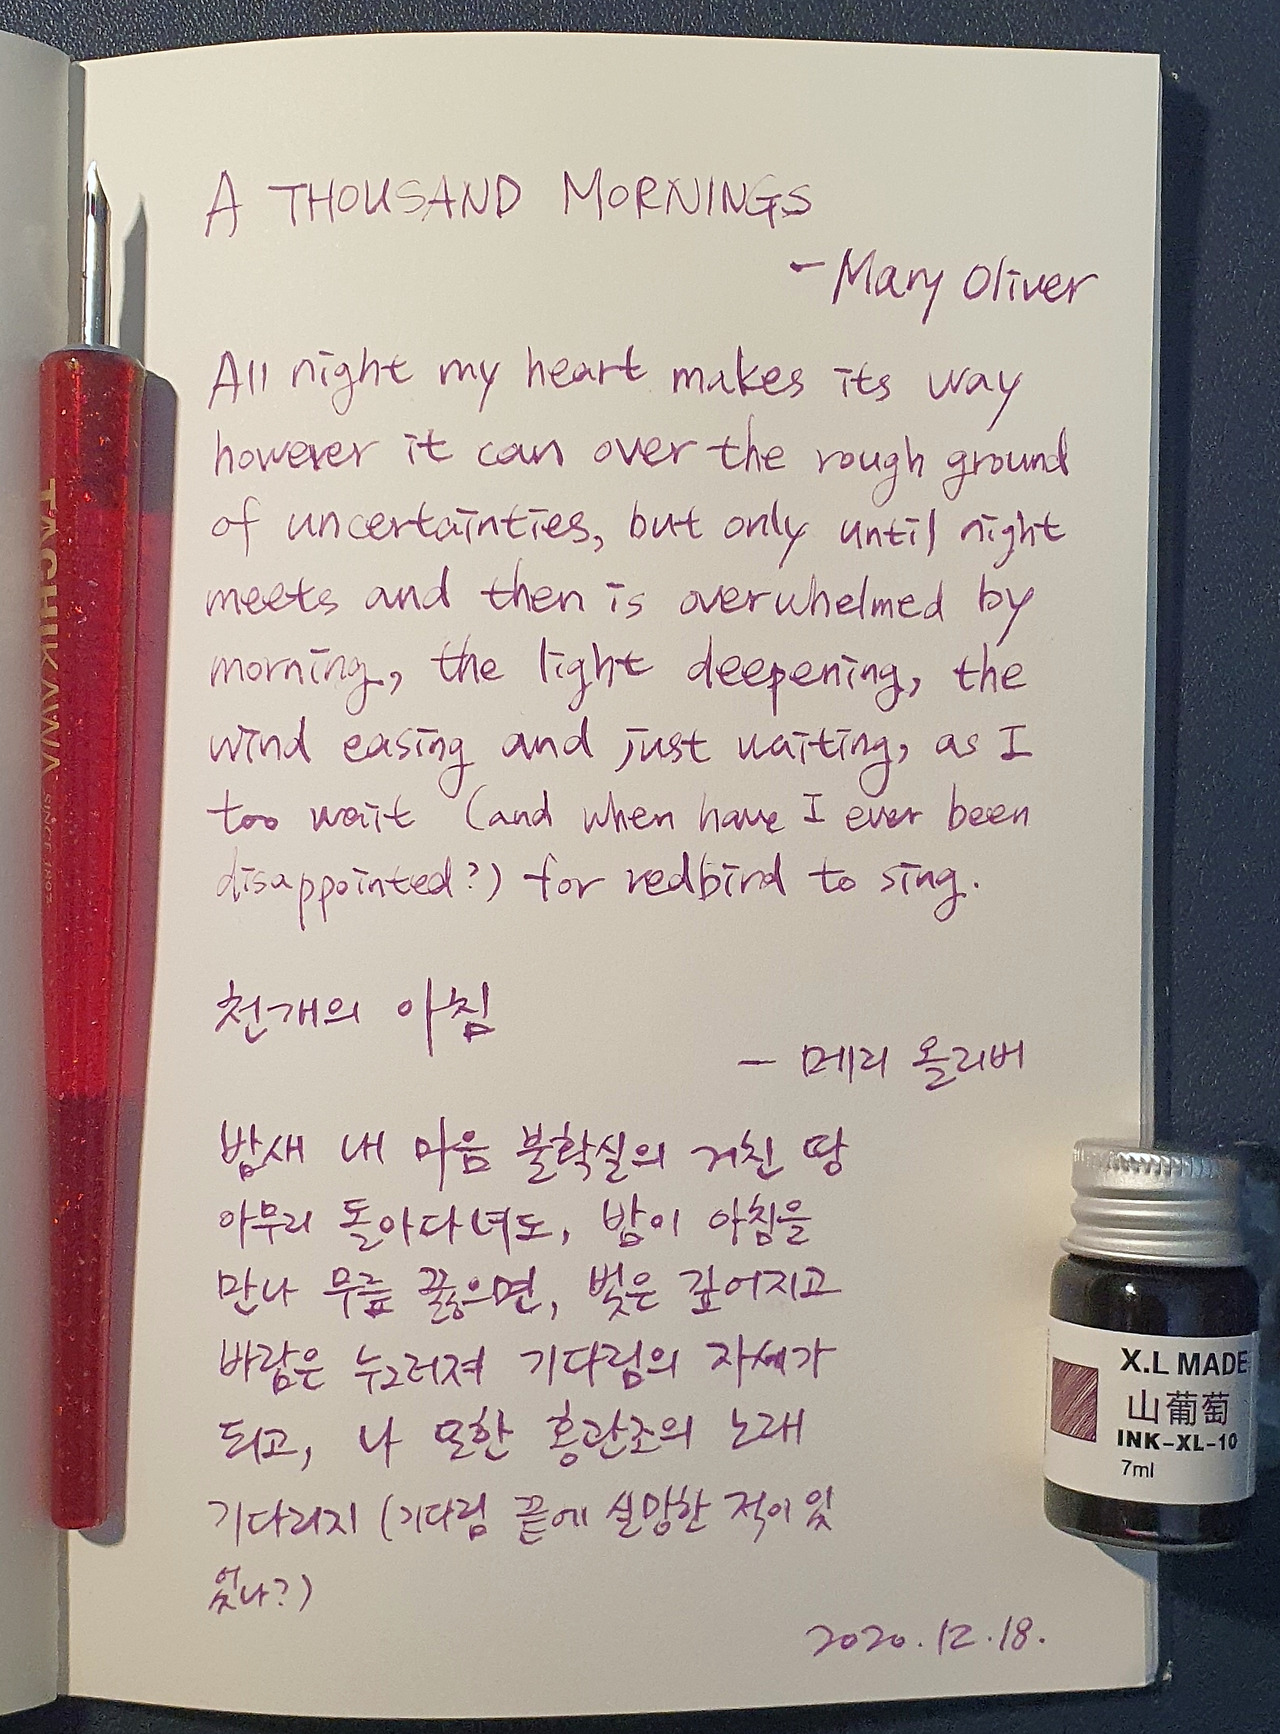 A THOUSAND MORNINGS
- Mary Oliver
All night my heart makes its way
however it can over the rough ground
of uncertainties, but only until night
meets and then is overwhelmed by
morning, the light deepening, the
wind easing and just waiting, as I
too wait (and when have I ever been
disappointed?) for redbird to sing.
천개의 아침
- 메리 올리버
밤새 내 마음 불확실의 거친 땅
아무리 돌아다녀도, 밤이 아침을
만나 무릎 꿇으면, 빛은 깊어지고
바람은 누그러져 기다림의 자세가
되고, 나 또한 홍관조의 노래
기다리지 (기다림 끝에 실망한 적이 있
었나?)
2020.12.18.
TACHIKAWA SINCE
X.L MADE
山葡萄
INK-XL-10
7ml